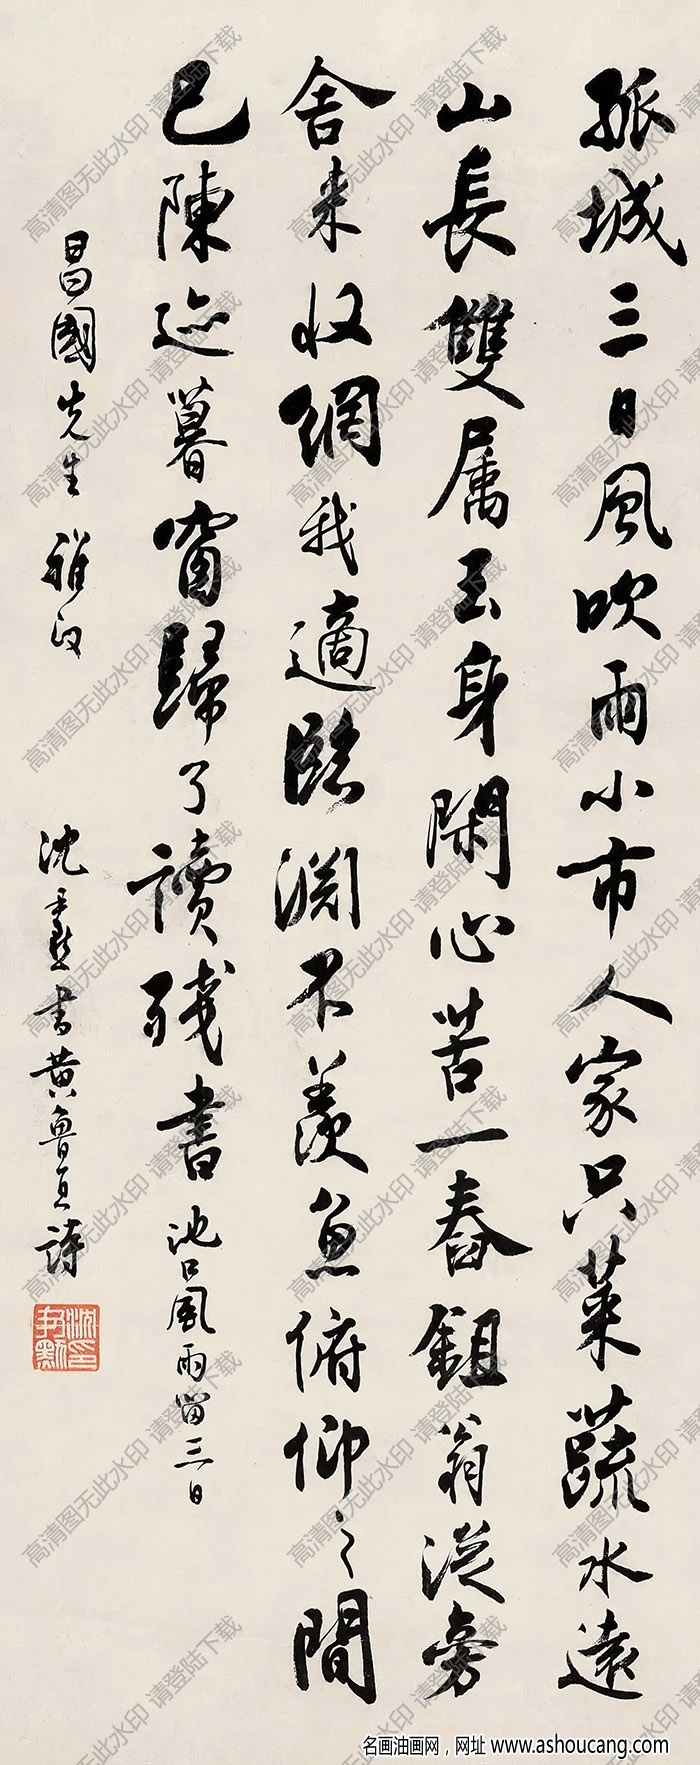 孤城三日風吹雨小市人家只菜蔬水遠
山長雙属玉身閑心苦一舂鉏翁從旁
舍來收網我適臨淵不羨魚俯仰之間
已陳迹暮窗歸了讀殘書 池口風雨留三日
昌國先生 雅
沈尹默書黃魯直詩
沈印尹默
高清图无此水印 请登陆下载
名画油画网，网址 www.ashoucang.com